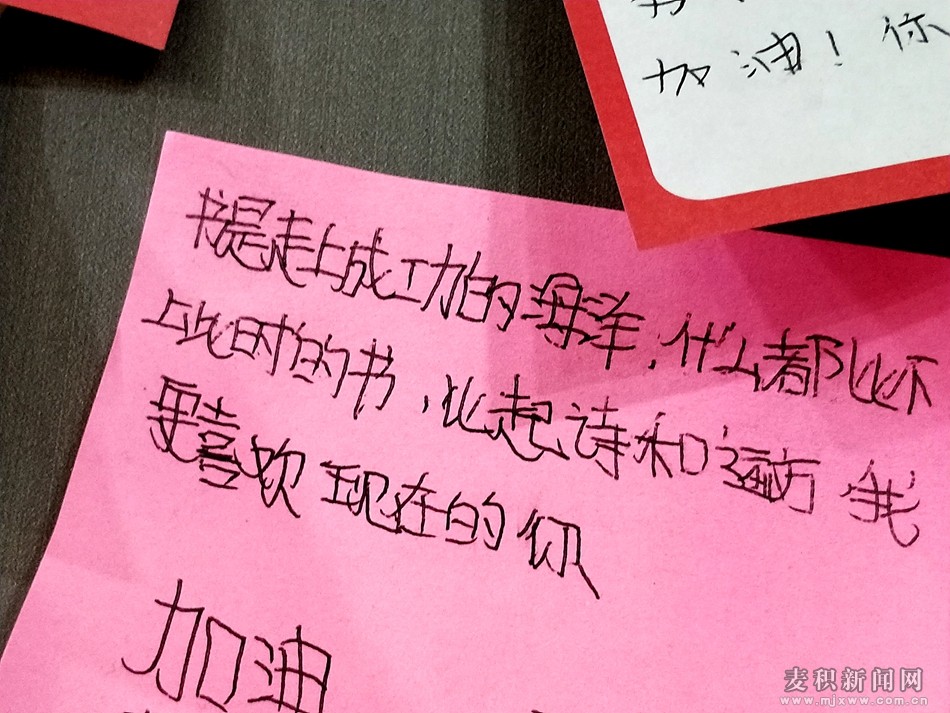 加油！你
书是走上成功的海洋，什么都比不
上此时的书，比起诗和遍方 我
更喜欢现在的你
加油
麦积新闻网
www.mjxww.com.cn